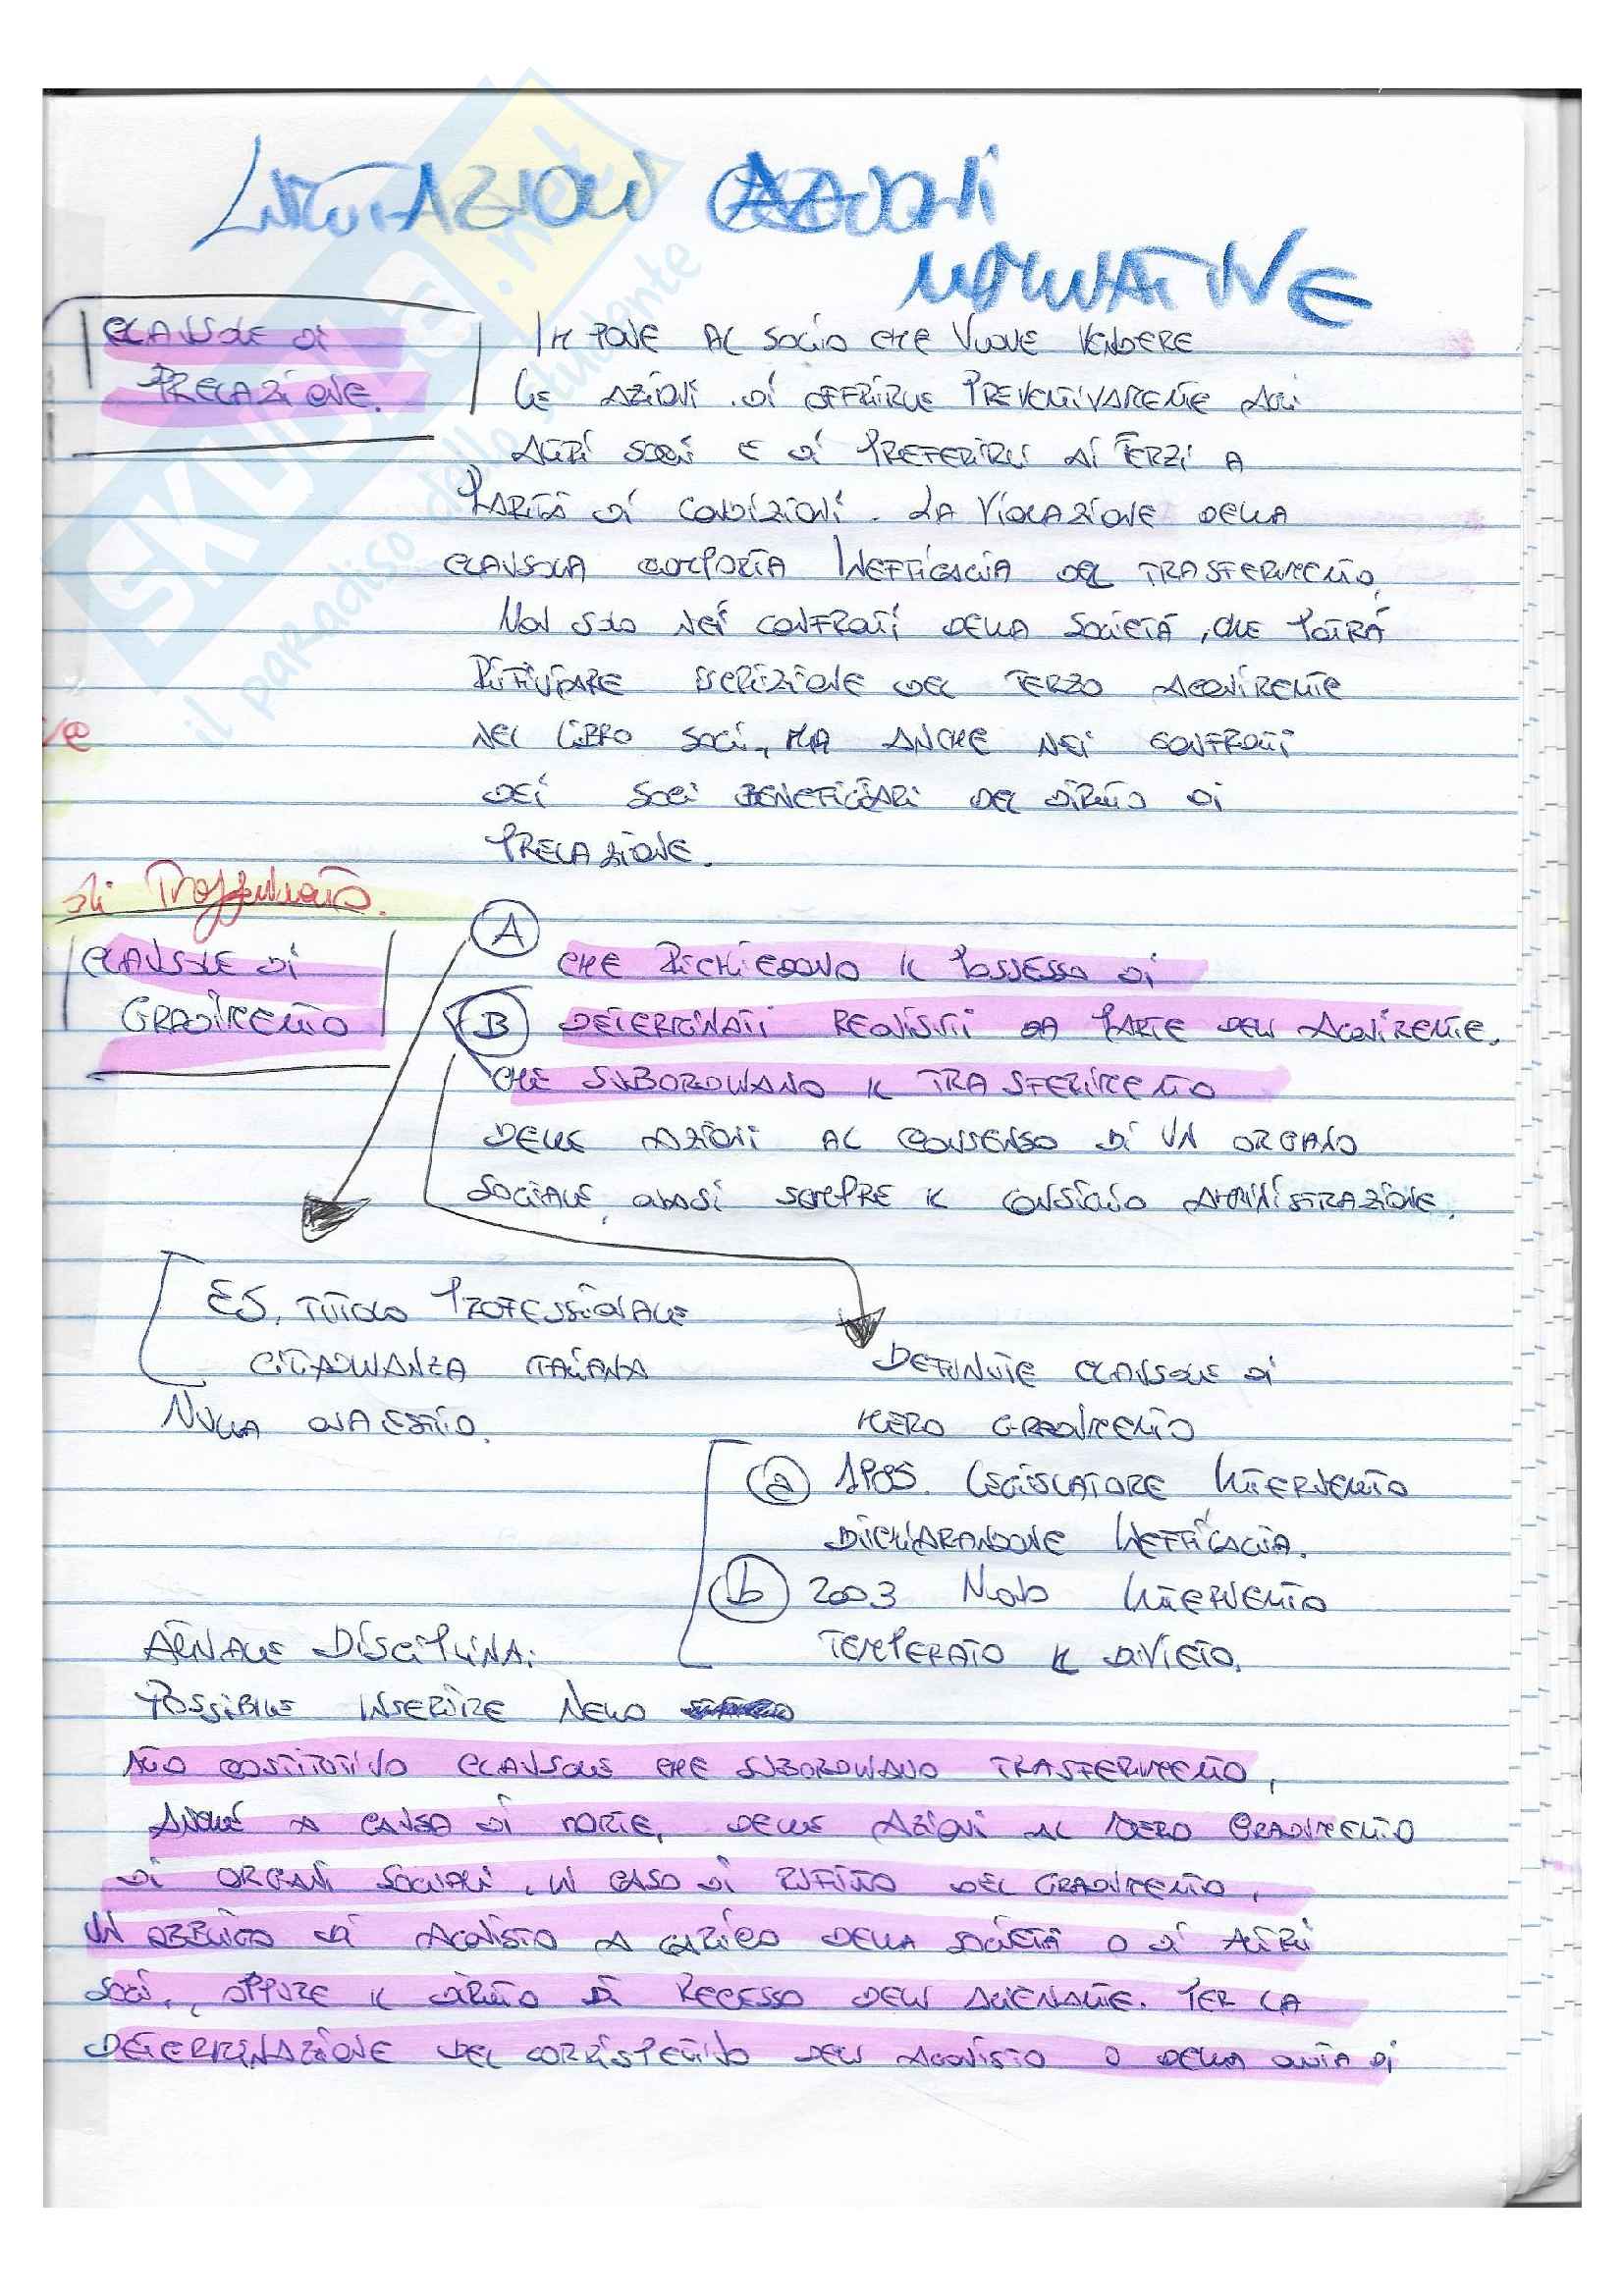 LIMITAZIONI AZIONI
NOMINATIVE
CLAUSOLE DI
PRELAZIONE.
IMPONE AL SOCIO CHE VUOLE VENDERE
LE AZIONI DI OFFRIRLE PREVENTIVAMENTE AGLI
ALTRI SOCI E DI PREFERIRLI AI TERZI A
PARITÀ DI CONDIZIONI. LA VIOLAZIONE DELLA
CLAUSOLA COMPORTA INEFFICACIA DEL TRASFERIMENTO,
NON SOLO NEI CONFRONTI DELLA SOCIETÀ, CHE POTRÀ
RIFIUTARE ISCRIZIONE DEL TERZO ACQUIRENTE
NEL LIBRO SOCI, MA ANCHE NEI CONFRONTI
DEI SOCI BENEFICIARI DEL DIRITTO DI
PRELAZIONE.
di Trasferimento.
CLAUSOLE DI
GRADIMENTO
A CHE RICHIEDONO IL POSSESSO DI
B DETERMINATI REQUISITI DA PARTE DELL ACQUIRENTE.
CHE SUBORDINANO IL TRASFERIMENTO
DELLE AZIONI AL CONSENSO DI UN ORGANO
SOCIALE, QUASI SEMPRE IL CONSIGLIO AMMINISTRAZIONE.
ES. TITOLO PROFESSIONALE
CITTADINANZA ITALIANA
NULLA QUAESTIO.
DEFINITE CLAUSOLE DI
MERO GRADIMENTO
a 1985. LEGISLATORE INTERVENTO
DICHIARANDONE INEFFICACIA.
b 2003 NUOVO INTERVENTO
TEMPERATO IL DIVIETO.
ATTUALE DISCIPLINA:
POSSIBILE INSERIRE NELLO
ATTO COSTITUTIVO CLAUSOLE CHE SUBORDINANO TRASFERIMENTO,
ANCHE A CAUSA DI MORTE, DELLE AZIONI AL MERO GRADIMENTO
DI ORGANI SOCIALI, IN CASO DI RIFIUTO DEL GRADIMENTO,
UN OBBLIGO DI ACQUISTO A CARICO DELLA SOCIETÀ O DI ALTRI
SOCI, OPPURE IL DIRITTO DI RECESSO DELL ALIENANTE. PER LA
DETERMINAZIONE DEL CORRISPETTIVO DELL ACQUISTO O DELLA QUOTA DI
SKUOLA.net
il paradiso dello studente